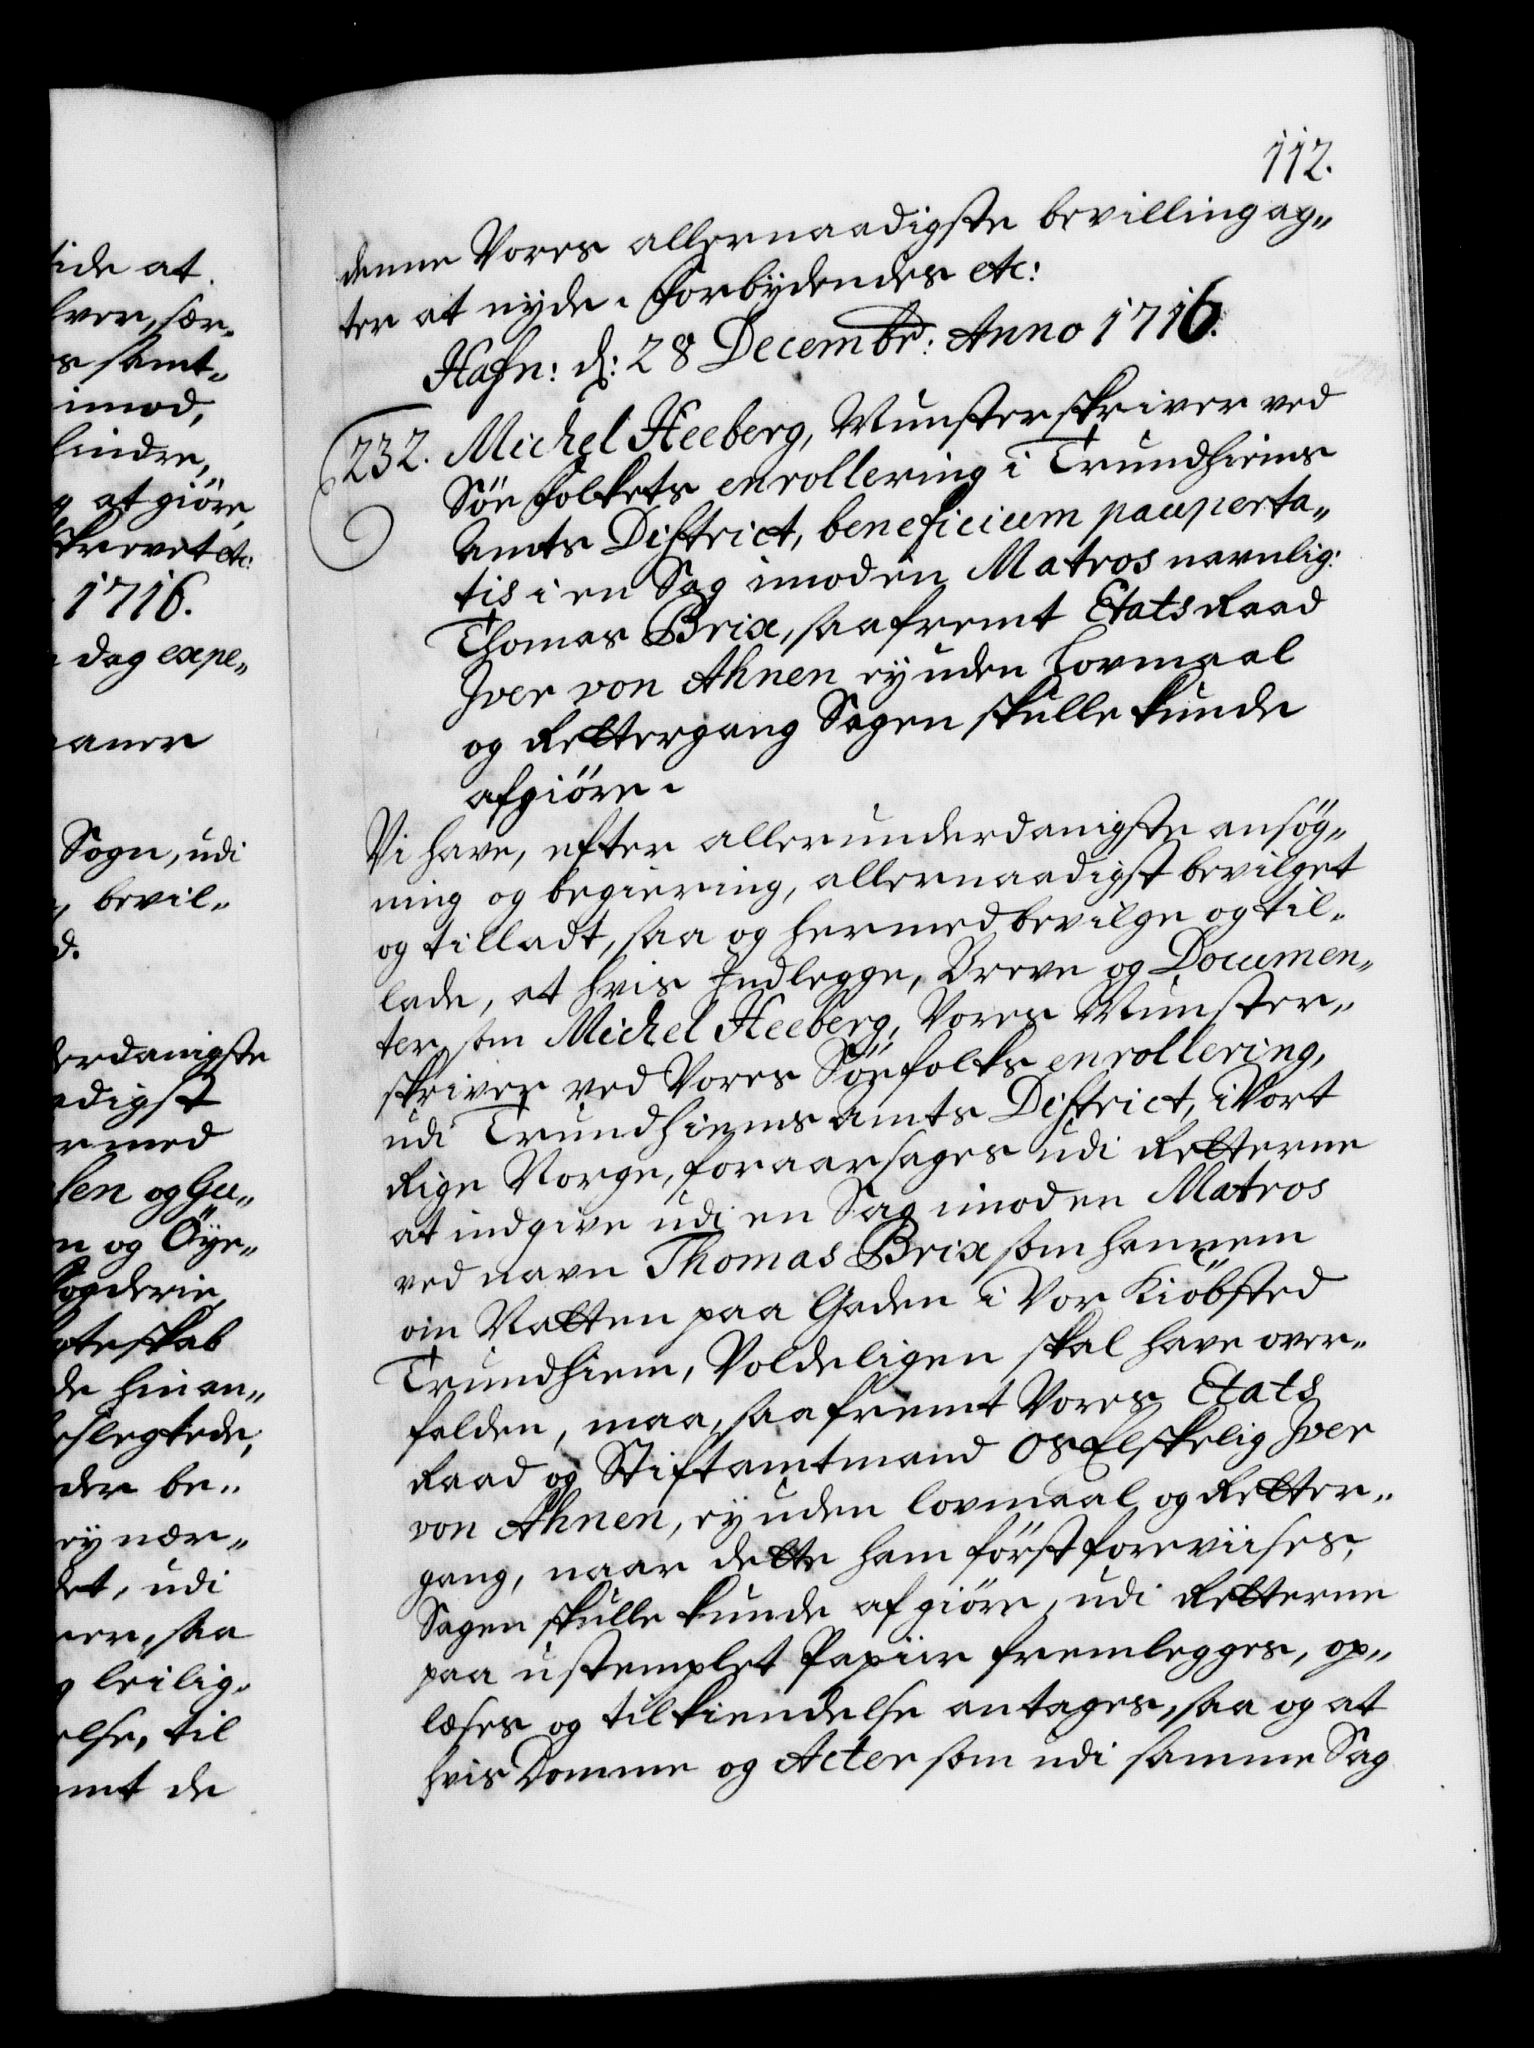 ide at
lver, sær-
s samt-
imod,
hindre,
g at giöre,
skrevet etc:
1716.
dag expe„
aner
Sogn, udi
bevil-
d.
derdanigste
adigst
rmed
sen og Gu„
n og Öye„
fogderie,
gteskab
de hinan„
eslegtede,
der be„
ey nær„
det, udi
er, saa
g leilig„
else, til
mt de
112.
denne Vores allernaadigste bevilling ag„
ter at nyde. Forbydendes etc:
Hafn: d: 28 Decembr: Anno 1716.
232. Michel Heeberg, Munsterskriver ved
Söe folkets enrollering i Trundhiems
Amts District, beneficium pauperta„
tis i en Sag imod en Matros navnlig:
Thomas Brix, saafremt Etats Raad
Iver von Ahnen ey uden Lovmaal
og Rettergang Sagen skulle kunde
afgiöre.
Vi have, efter allerunderdanigste ansög„
ning og begiering, allernaadigst bevilget
og tilladt, saa og hermed bevilge og til„
lade, at hvis Indlegge, Breve og Documen„
ter som Michel Heeberg, Vores Munster„
skriver ved Vores Söefolks enrollering,
udi Trundhiems amts District, i Vort
Rige Norge, foraarsages udi Retterne
at indgive udi en Sag imod en Matros
ved navn Thomas Brix som hannem
om Natten paa Gaden i Vor Kiöbsted
Trundhiem, Voldeligen skal have over„
falden, maa, saafremt Vores Etats
Raad og Stiftamtmand Os Elskelig Iver
von Ahnen, ey uden lovmaal og Retter„
gang, naar dette ham först foreviises,
Sagen skulle kunde afgiöre, udi Retterne
paa ustemplet Papiir fremlegges, op„
læses og til kiendelse antages, saa og at
hvis Domme og Acter som udi samme Sag